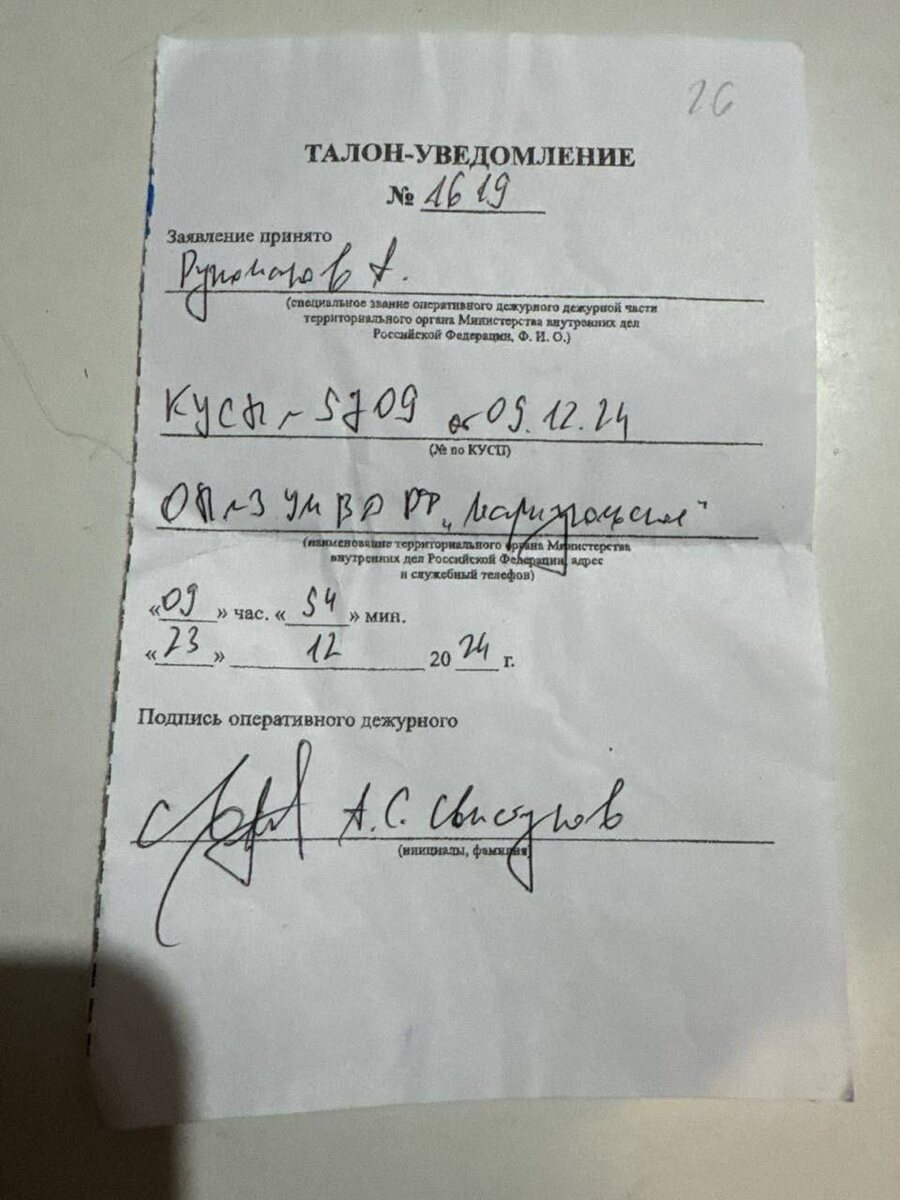 26
ТАЛОН-УВЕДОМЛЕНИЕ
№ 1619
Заявление принято
А.
(специальное звание оперативного дежурного дежурной части
территориального органа Министерства внутренних дел
Российской Федерации, Ф. И. О.)
КУСП № 5709 от 09.12.24
(№ по КУСП)
ОП №3 УМВД РФ „Мариупольское"
(наименование территориального органа Министерства
внутренних дел Российской Федерации, адрес
и служебный телефон)
«09» час. «54» мин.
«23» 12 2024 г.
Подпись оперативного дежурного
А.С. Свистунов
(инициалы, фамилия)